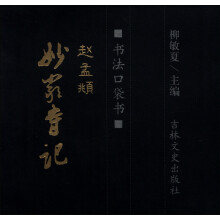 柳敏夏/主编
吉林文史出版社
■书法口袋书■
赵孟頫
妙嚴寺記